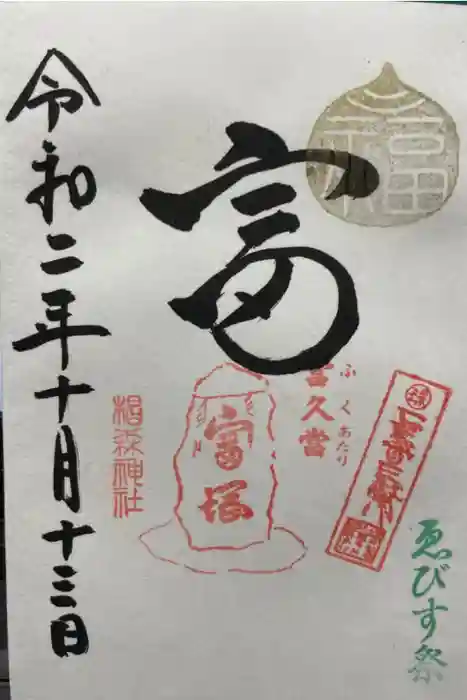 福
富
ふくあたり
富久當
富塚
椙森神社
ゑびす祭
令和二年十月十三日